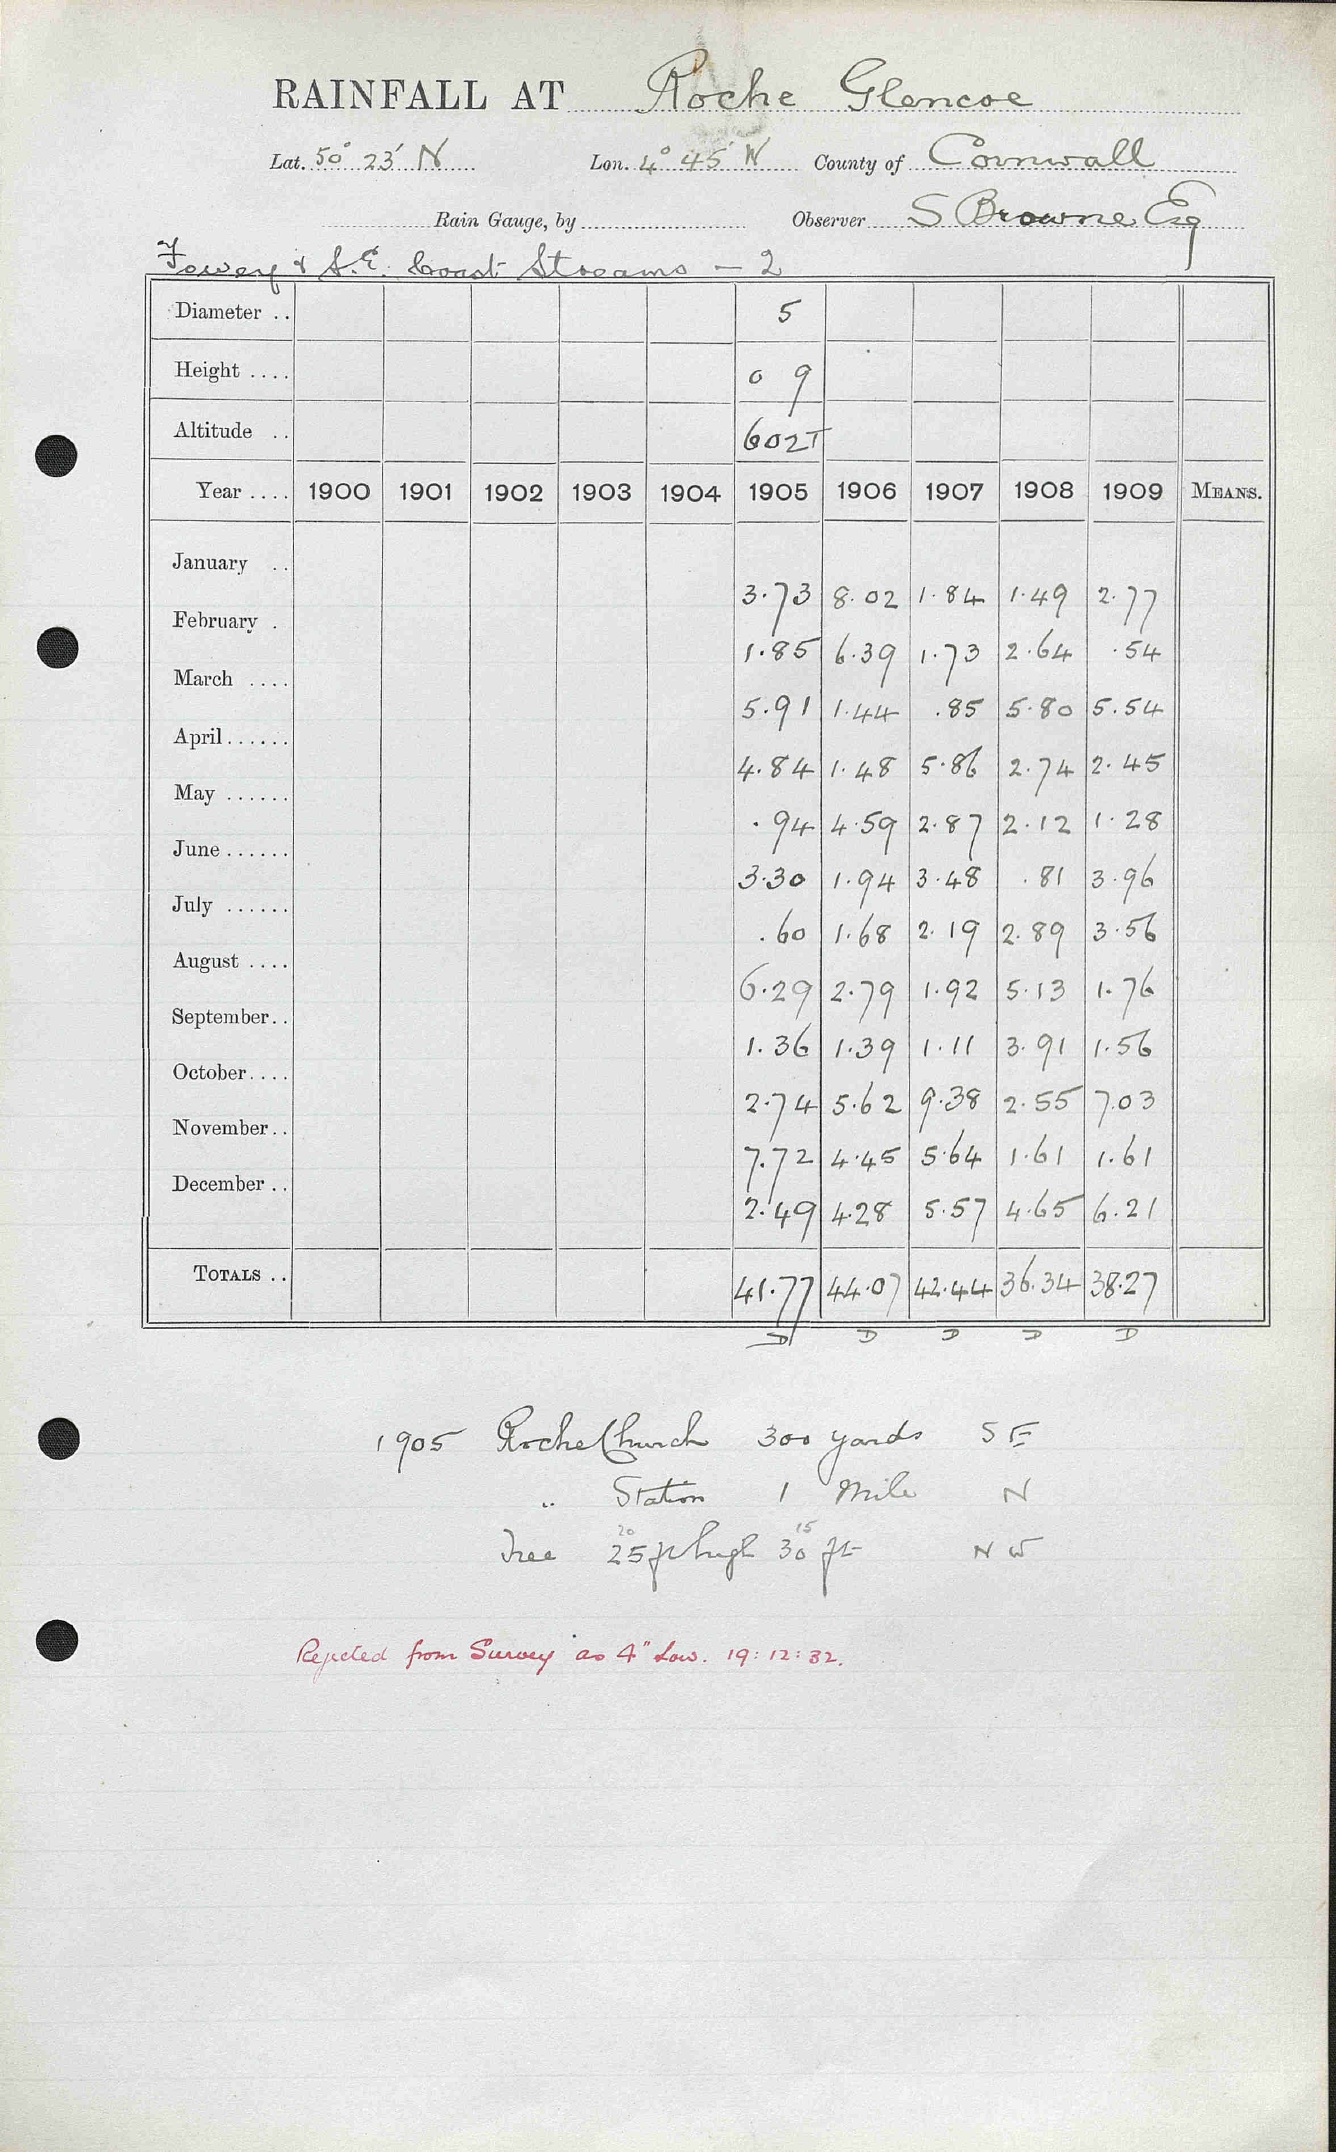 RAINFALL AT Roche Glencoe
Lat. 50° 23' N Lon. 4° 45' W County of Cornwall
Rain Gauge, by Observer S Browne Esq
Fowey & S.E. Coast Streams — 2
Diameter .. 5
Height .... 0 9
Altitude .. 602T
Year .... 1900 1901 1902 1903 1904 1905 1906 1907 1908 1909 MEANS.
January .. 3.73 8.02 1.84 1.49 2.77
February . 1.85 6.39 1.73 2.64 .54
March .... 5.91 1.44 .85 5.80 5.54
April...... 4.84 1.48 5.86 2.74 2.45
May ...... .94 4.59 2.87 2.12 1.28
June...... 3.30 1.94 3.48 .81 3.96
July ...... .60 1.68 2.19 2.89 3.56
August .... 6.29 2.79 1.92 5.13 1.76
September.. 1.36 1.39 1.11 3.91 1.56
October.... 2.74 5.62 9.38 2.55 7.03
November.. 7.72 4.45 5.64 1.61 1.61
December .. 2.49 4.28 5.57 4.65 6.21
TOTALS .. 41.77 44.07 42.44 36.34 38.27
D D D D D
1905 Roche Church 300 yards S E
" Station 1 Mile N
20 15
Tree 25 ft high 30 ft N W
Rejected from Survey as 4" Low. 19:12:32.